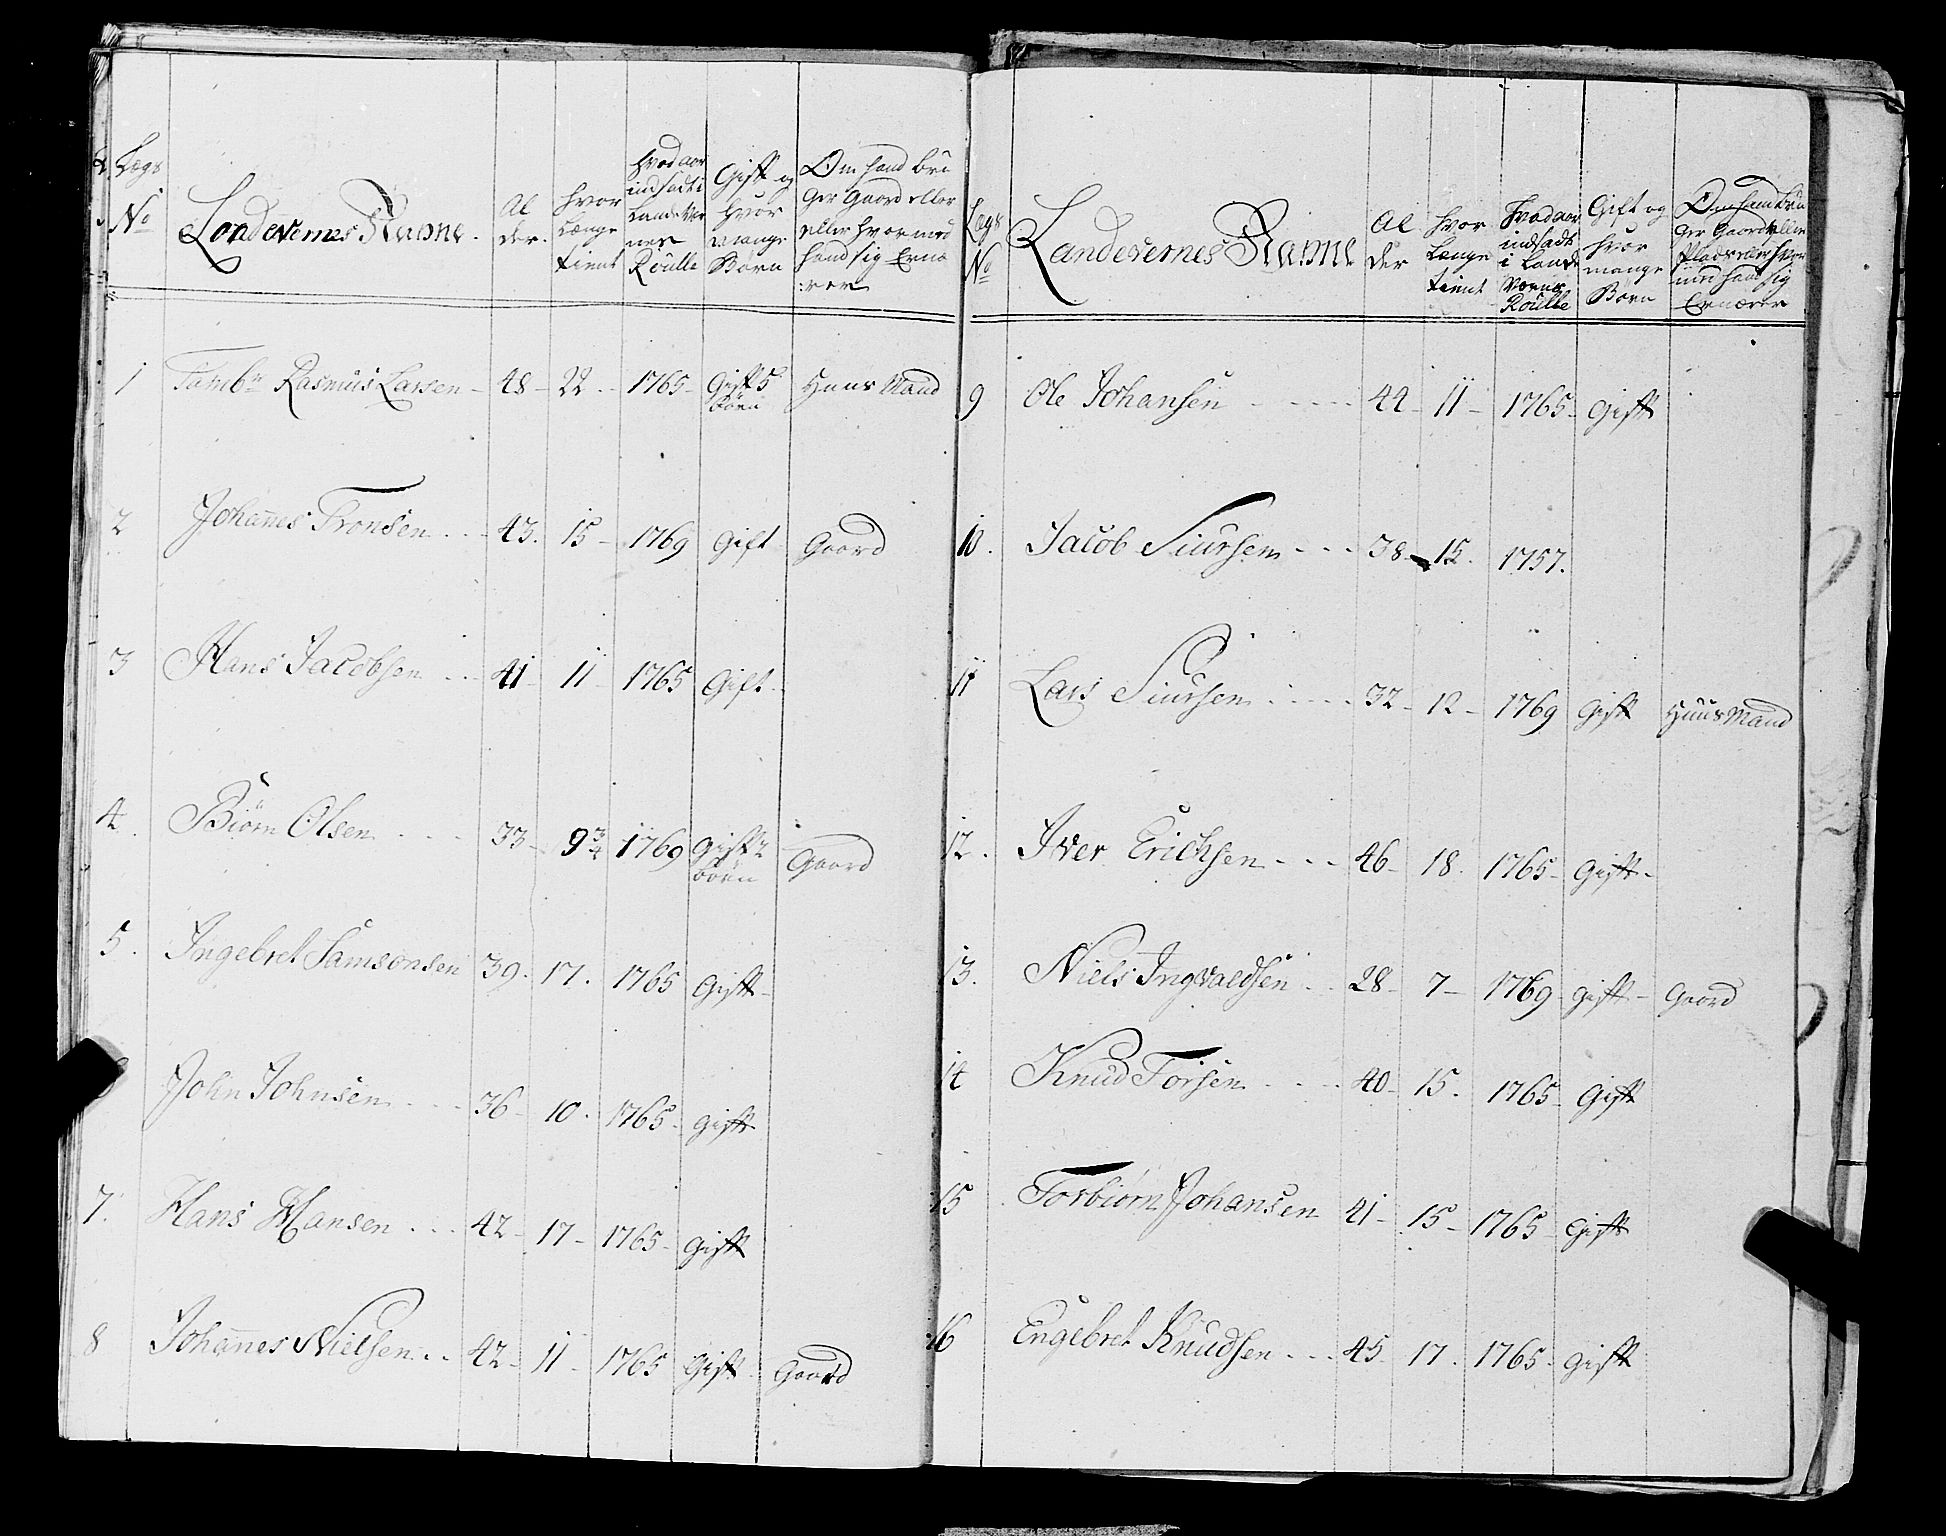 Lægs No
Landevernes Navne.
Al der.
hvor Længe tient
hvad aar indsadt i Lande Ver nes Roulle
Gift og hvor mange Børn
Om hand bru ger Gaard eller eller hvor med hand sig Ernæ rer
1 Tambr Rasmus Larsen - 48 - 22 - 1765 - Gift 5 børn Huus Mand
2 Johannes Tronsen - 43. 15 - 1769 Gift Gaard
3 Hans Jacobsen - 41 - 11 - 1765 Gift
4 Biørn Olsen - 33 - 9 3/4 1769 Gift 2 børn Gaard
5. Ingebret Samsonsen 39. 17. 1765 Gift -
John Johnsen - 36 - 10. 1765. gift
7. Hans Hansen - 42 - 17 - 1765 - gift
8 Johannes Nielsen - 42 - 11 - 1765 Gift Gaard
Lægs No
Landevernes Navne
Al der
hvor længe tient
Hvad aar indsadt i Lande Værnes Roulle
Gift og hvor mange Børn
Om hand bru ger Gaard eller Plads eller hvor med hand sig Ernærer
9 Ole Johansen - 44 - 11 - 1765 - Gift
10. Jacob Siursen - 38 - 15. 1757.
11 Lars Siursen - 32 - 12 - 1769 Gift Huus Mand
12. Iver Erichsen - 46 - 18. 1765 - Gift -
13. Niels Ingvaldsen - 28 - 7 - 1769 gift - Gaard
14 Knud Torsen - 40 - 15. 1765 - Gift
15 Torbiørn Johansen 41 - 15 - 1765 - Gift
16 Engebret Knudsen - 45 - 17. 1765. gift